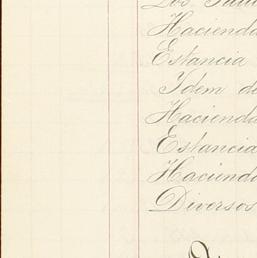 Los
Hacienda
Estancia
Idem de
Hacienda
Estancia
Hacienda
Diversos